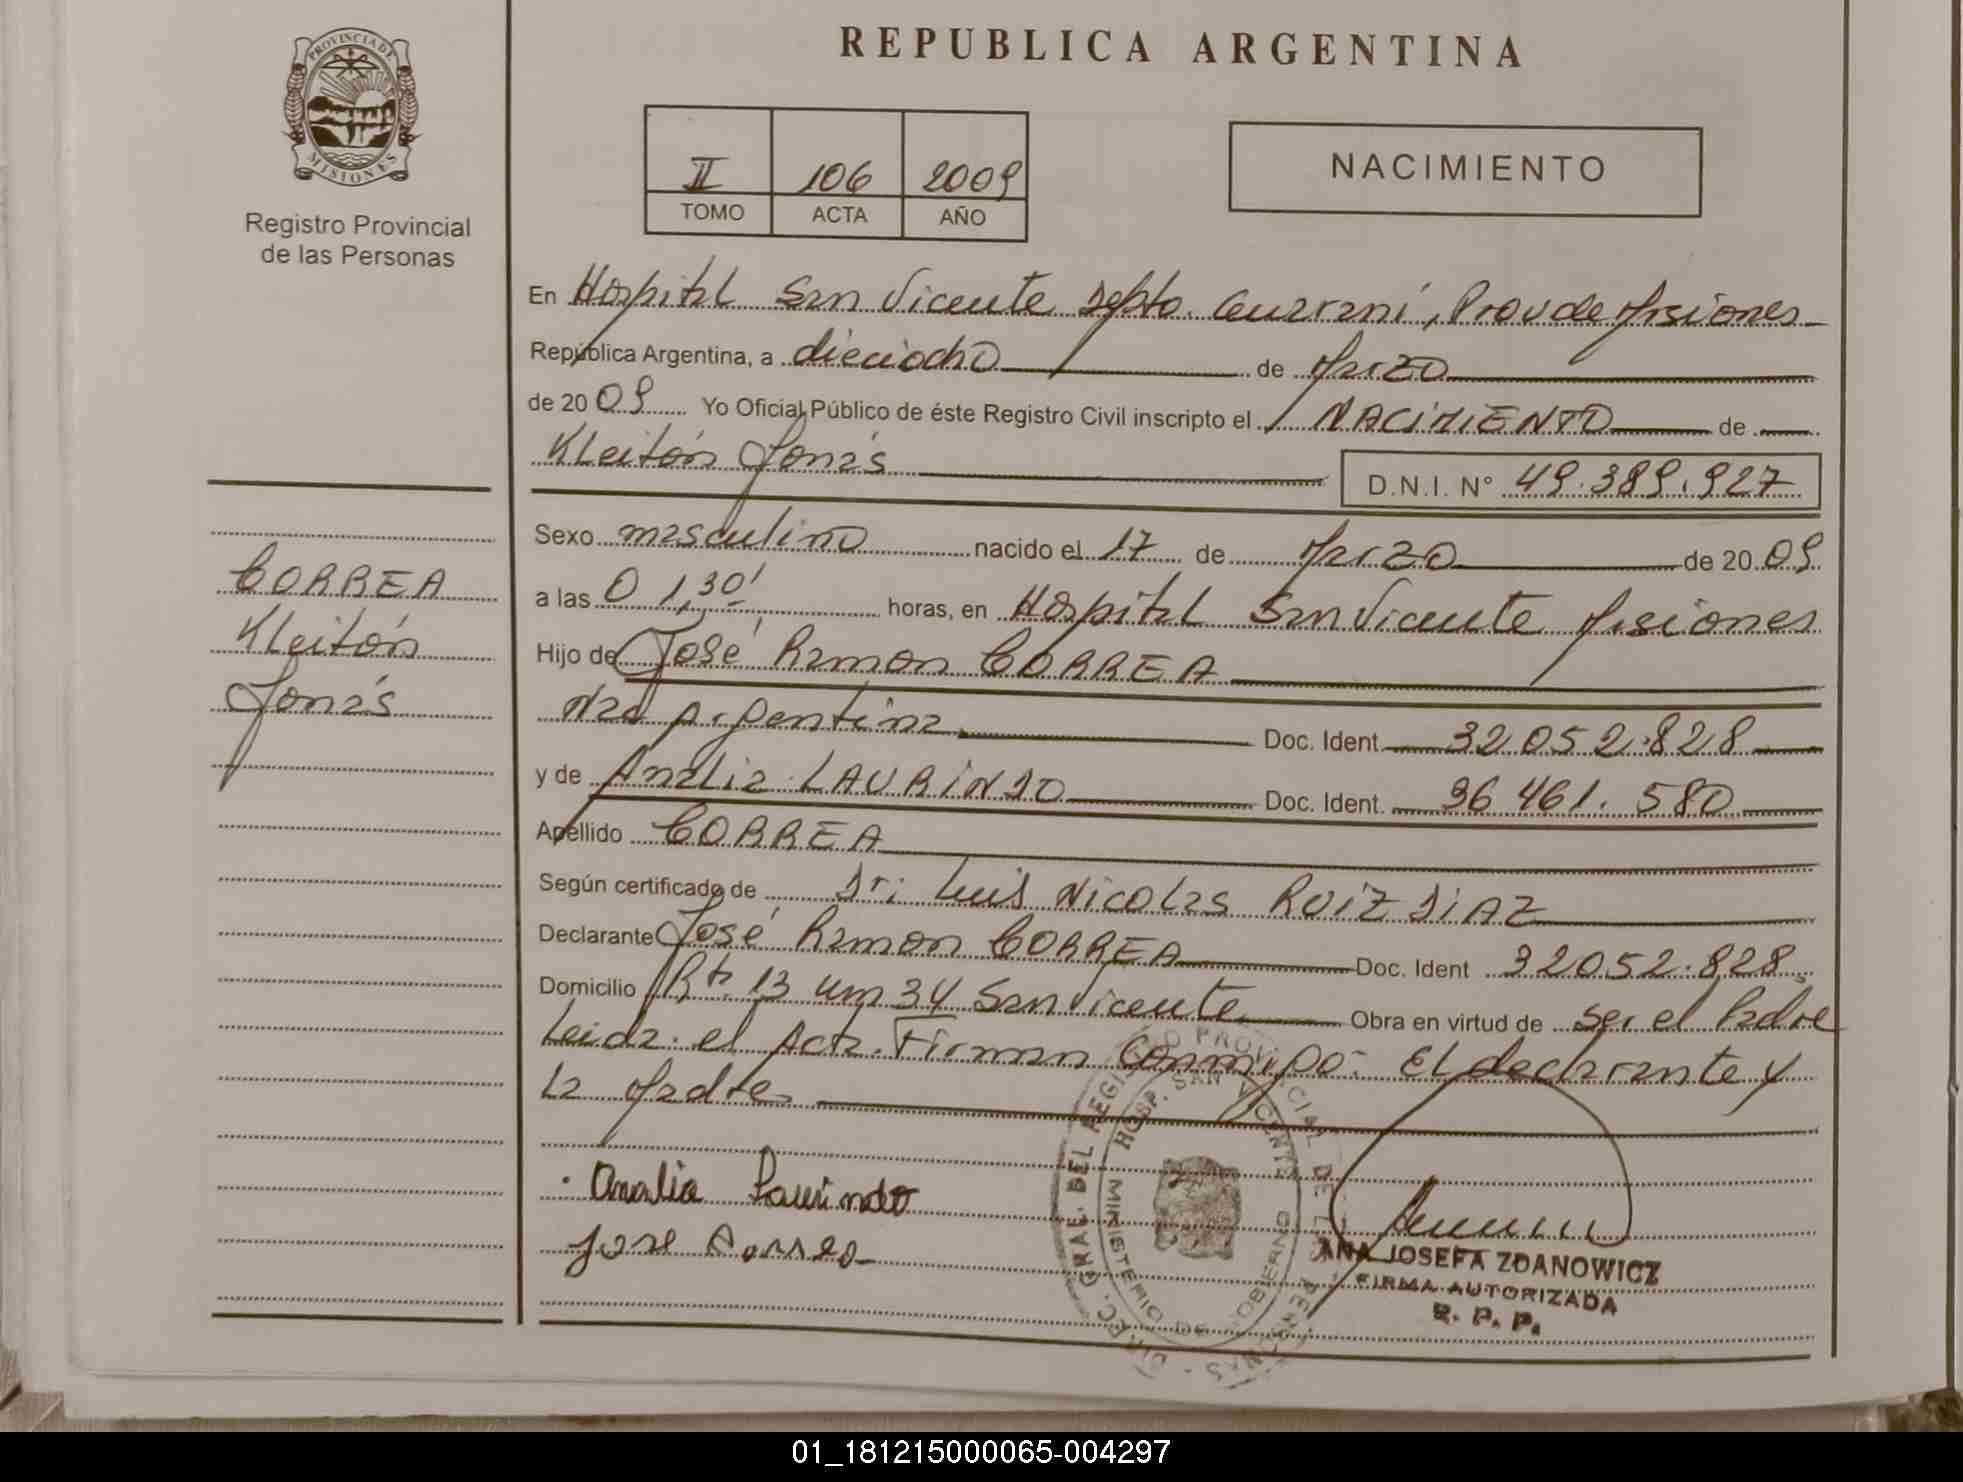 PROVINCIA DE
MISIONES
Registro Provincial
de las Personas
CORREA
Kleitón
Jonás
REPUBLICA ARGENTINA
II 106 2009
TOMO ACTA AÑO
NACIMIENTO
En Hospital San Vicente Depto. Guaraní, Prov de Misiones
República Argentina, a dieciocho de Marzo
de 2009 Yo Oficial Público de éste Registro Civil inscripto el NACIMIENTO de
Kleitón Jonás D.N.I. N° 49.389.927
Sexo masculino nacido el 17 de Marzo de 2009
a las 01,30' horas, en Hospital San Vicente Misiones
Hijo de José Ramon CORREA
Nac Argentina Doc. Ident. 32052.828
y de Analia LAURINDO Doc. Ident. 36461.580
Apellido CORREA
Según certificado de Dr: Luis Nicolas RUIZ DIAZ
Declarante José Ramon CORREA Doc. Ident 32052.828
Domicilio Rta 13 km 34 San Vicente Obra en virtud de ser el Padre
Leida el Acta. Firman Conmigo: El declarante y
la Madre
Analia Laurindo
Jose Correa
DIREC. GRAL. DEL REGISTRO PROVINCIAL DE LAS PERSONAS
HOSP. SAN VICENTE
MINISTERIO DE GOBIERNO
ANA JOSEFA ZDANOWICZ
FIRMA AUTORIZADA
R. P. P.
01_181215000065-004297